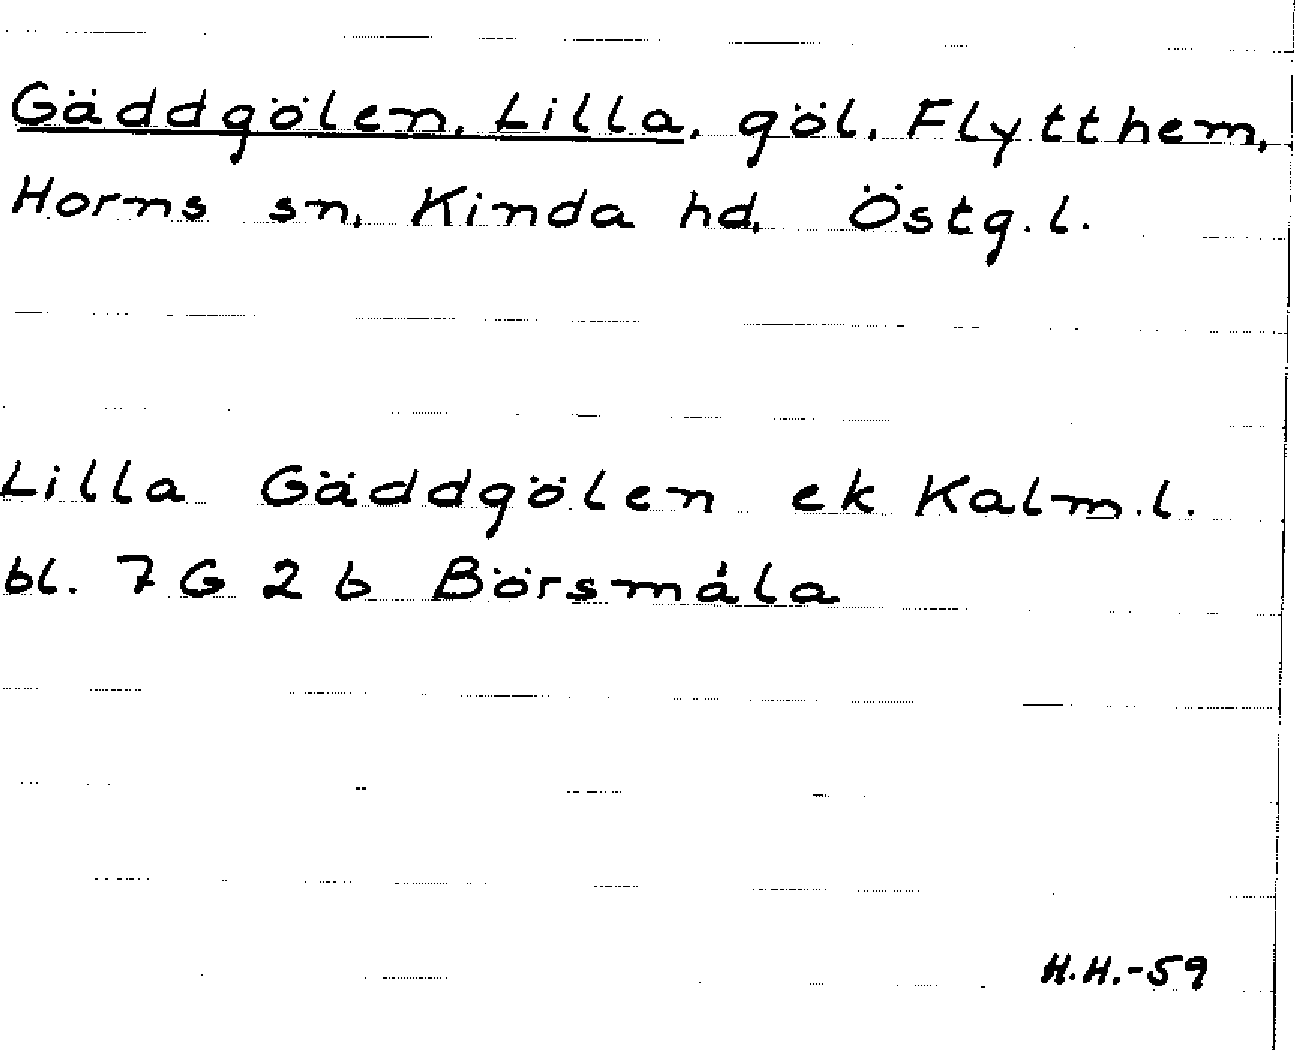 Gäddgölen, Lilla, göl, Flytthem,
Horns sn, Kinda hd, Östg.l.
Lilla Gäddgölen ek Kalm.l.
bl. 7 G 2 b Börsmåla
H.H.-59